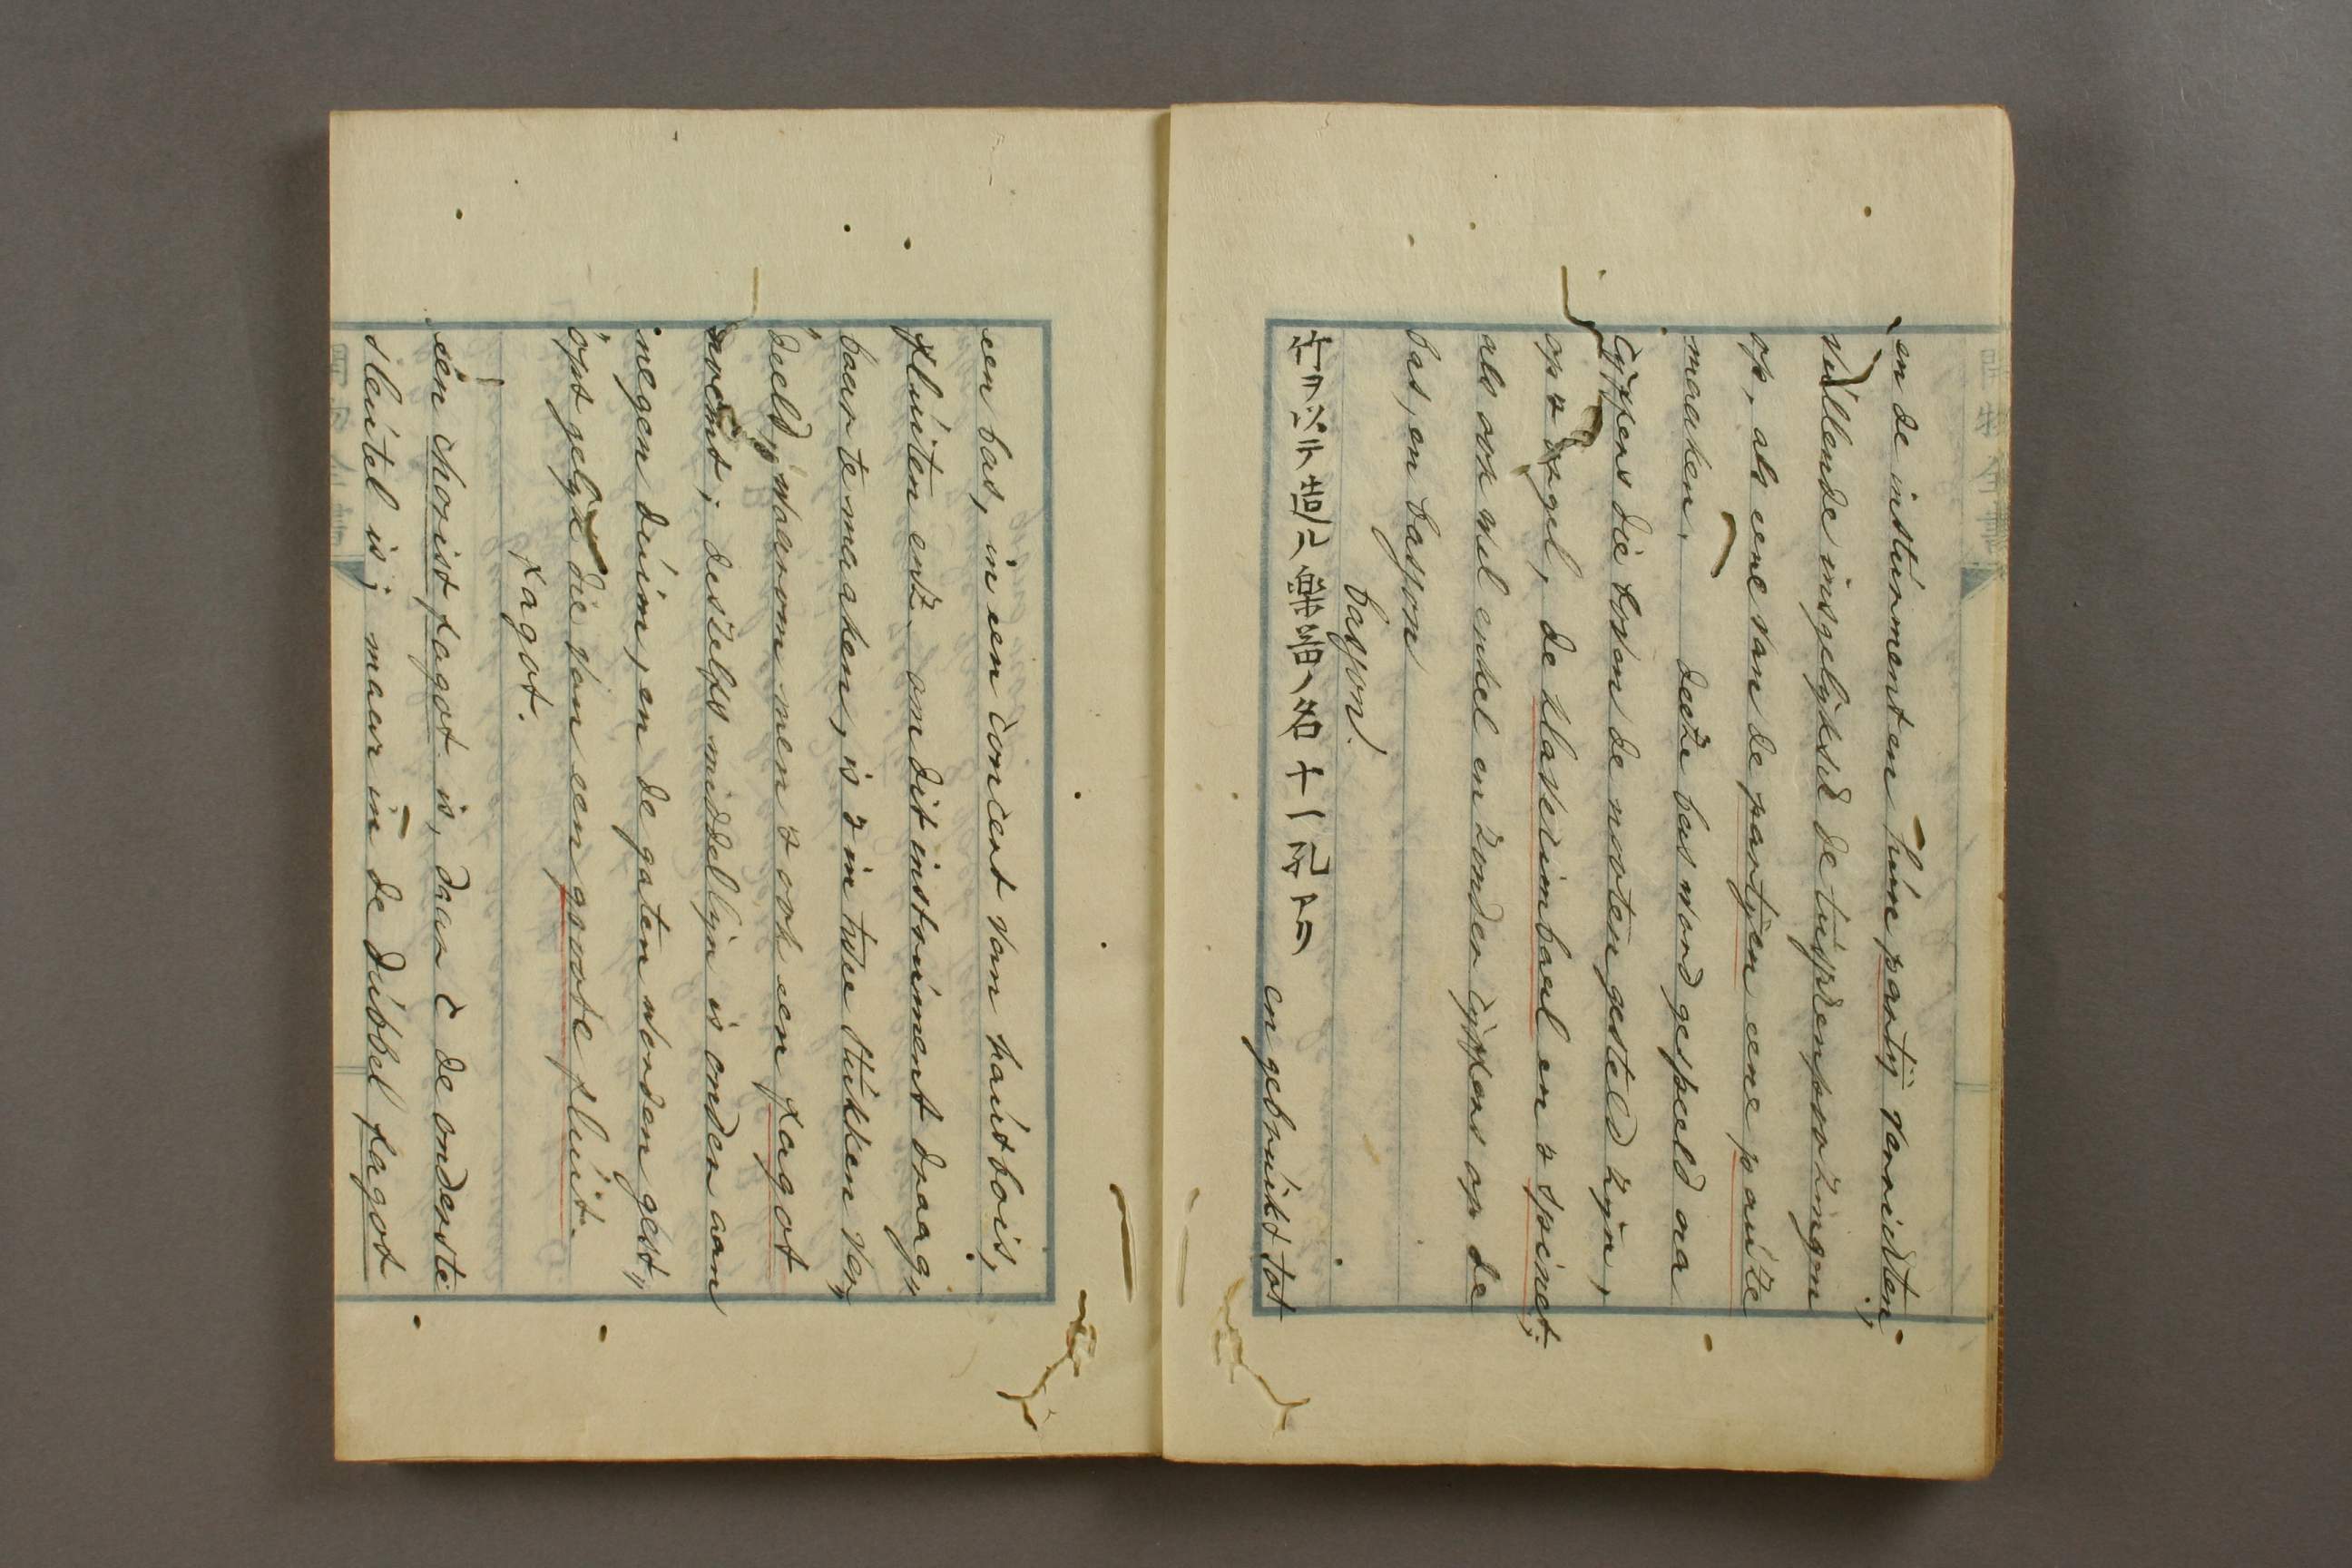 en de instúrmenten hún partij verridten;
vúllende insgelÿksd de túsprenpoozingen
op, als eene van de partÿen eene paúze
maaken. deeze bas word gespeeld na
cÿffers die boven de nooten gesteld zyn,
op 't orgel, de klavecimbaal en 't spinet;
als ook wel enkel en zonder cÿffers op de
bas, en basson
basson.
竹ヲ以テ造ル樂器ノ名十一孔アリ
en gebrúikt tot
een bas, in een concert van haútbois,
flúiten enz. om dit instrúment draag„
baar te maaken, is 't in twee stúkken ver„
deeld, waarom men 't ook een fagot
noemt; deszelfs middellyn is onder aan
negen dúim, en de gaten worden gest„
opt gelÿk die van een groote flúit.
fagot.
een chorist fagot is, daar C de onderste
sleútel is; maar in de dúbbel fagot